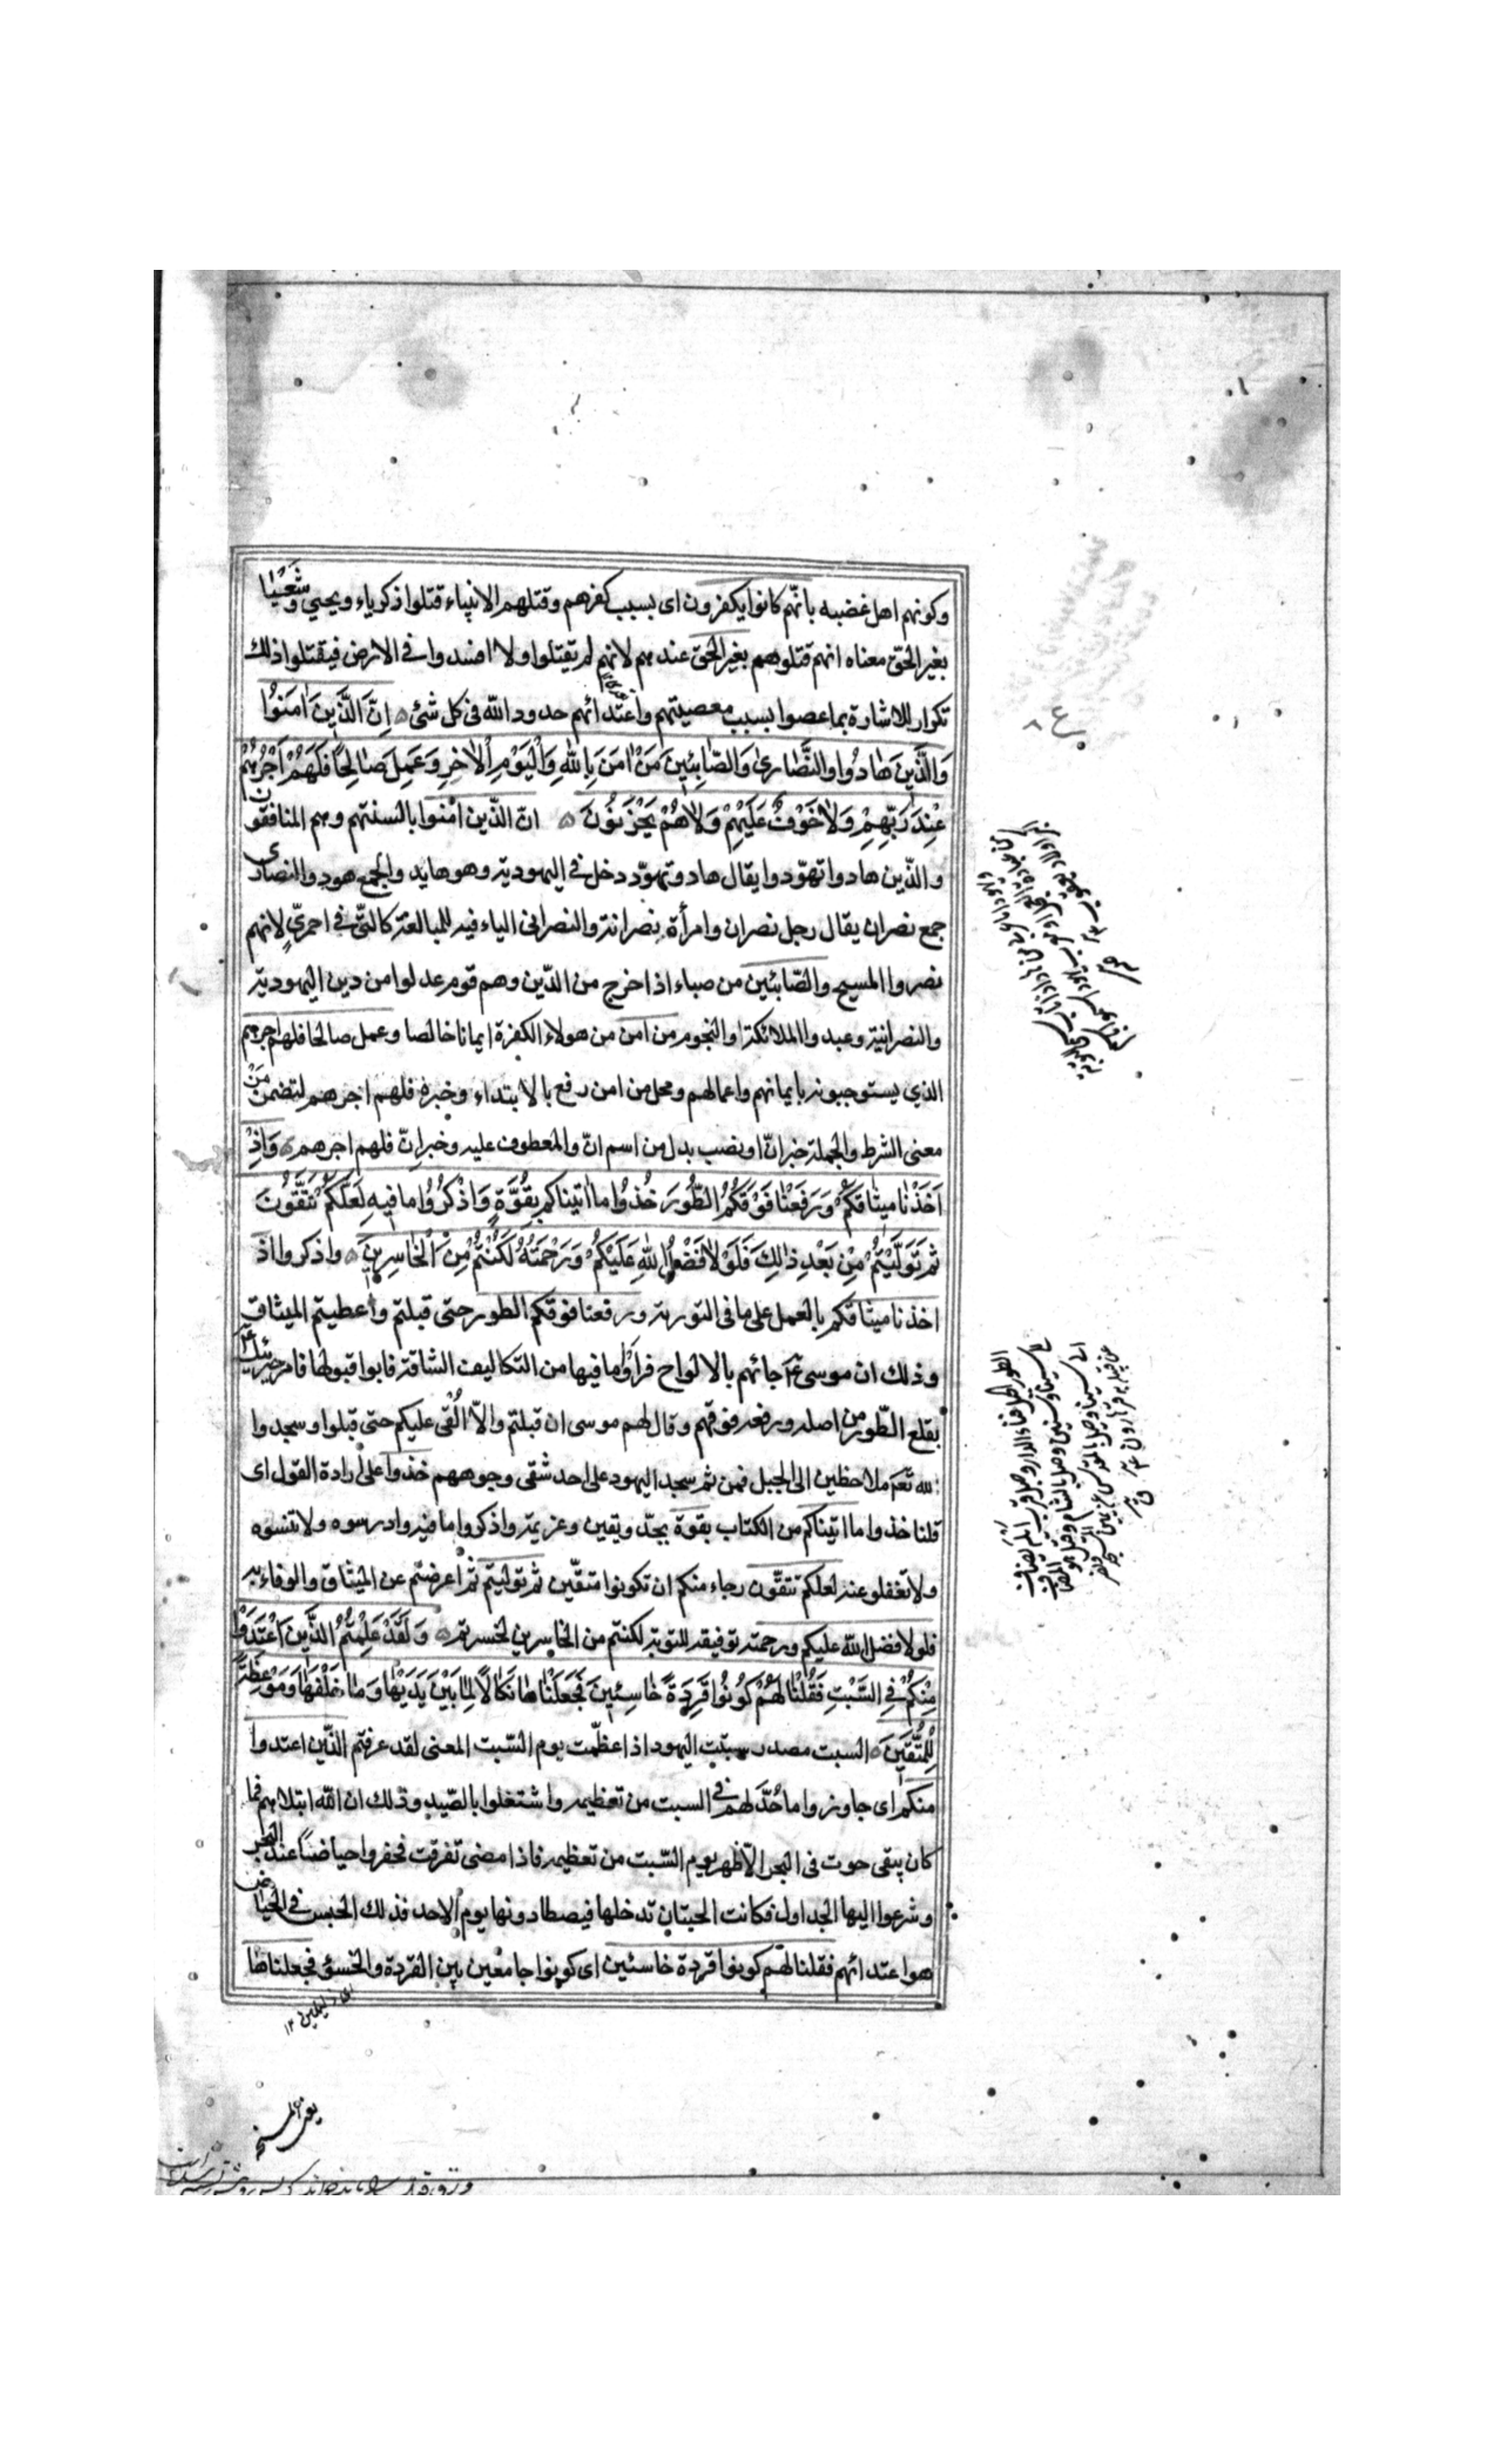 وكونهم اهل غضبه بانّهم كانوا يكفرون اى بسبب كفرهم وقتلهم الانبياء قتلوا ذكرياء ويحيي وشَعْيَا
بغير الحق معناه انهم قتلوهم بغير الحق عندهم لانهم لم يقتلوا ولا افسدوا فى الارض فيقتلوا ذلك
تكرار للاشارة بما عصوا بسبب معصيتهم واعتدائهم حدود الله فى كل شئ اِنَّ الَّذِينَ اٰمَنُوا
وَالَّذِينَ هَادُوا وَالنَّصَارىٰ وَالصَّابِئِينَ مَنْ اٰمَنَ بِاللهِ وَالْيَوْمِ الْاٰخِرِ وَعَمِلَ صَالِحًا فَلَهُمْ اَجْرُهُمْ
عِنْدَ رَبِّهِمْ وَلَا خَوْفٌ عَلَيْهِمْ وَلَا هُمْ يَحْزَنُونَ انّ الّذين اٰمنوا بالسنتهم وهم المنافقون
والّذين هادوا تهوّدوا يقال هاد وتهوّد دخل فى اليهودية وهو هايد والجمع هود والنصارى
جمع نصران يقال رجل نصران وامرأة نصرانة والنصرانى الياء فيه للمبالغة كالتى فى احمرىّ لانهم
نصروا المسيح والصّابئين من صباء اذا خرج من الدّين وهم قوم عدلوا من دين اليهودية
والنصرانية وعبدوا الملائكة والنجوم من امن من هولاء الكفرة ايمانا خالصا وعمل صالحا فلهم اجرهم
الذي يستوجبونه بايمانهم واعمالهم ومحل من امن رفع بالابتداء وخبره فلهم اجرهم لتضمن مَنْ
معنى الشرط والجملة خبر انّ او نصب بدل من اسم انّ والمعطوف عليه وخبر انّ فلهم اجرهم وَاِذْ
اَخَذْنَا مِيثَاقَكُمْ وَرَفَعْنَا فَوْقَكُمُ الطُّورَ خُذُوا مَا اٰتيناكم بِقُوَّةٍ وَاذْكُرُوا مَا فِيهِ لَعَلَّكُمْ تَتَّقُونَ
ثُمَّ تَوَلَّيْتُمْ مِنْ بَعْدِ ذٰلِكَ فَلَوْلَا فَضْلُ اللهِ عَلَيْكُمْ وَرَحْمَتُهُ لَكُنْتُمْ مِنَ الْخَاسِرِينَ واذكروا اذ
اخذنا ميثاقكم بالعمل على ما فى التورية ورفعنا فوقكم الطور حتى قبلتم واعطيتم الميثاق
وذلك ان موسى جائهم بالالواح فراوا ما فيها من التكاليف الشاقة فابوا قبولها فامر جبرئيل
بقلع الطّور من اصله ورفعه فوقهم وقال لهم موسى ان قبلتم والّا اُلْقى عليكم حتى قبلوا وسجدوا
لله تعم ملاحظين الى الجبل فمن ثم سجد اليهود على احد شقى وجوههم خذوا على ارادة القول اى
قلنا خذوا ما اتيناكم من الكتاب بقوة بجدّ ويقين وعزيمة واذكروا ما فيه وادرسوه ولا تنسوه
ولا تغفلو عنه لعلكم تتقّون رجاء منكم ان تكونوا متقّين ثم توليتم ثم اعرضتم عن الميثاق والوفاء به
فلولا فضل الله عليكم ورحمته توفيقه للتوبة لكنتم من الخاسرين لخسرتم وَلَقَدْ عَلِمْتُمُ الَّذِينَ اعْتَدَوْا
مِنْكُمْ فِي السَّبْتِ فَقُلْنَا لَهُمْ كُونُوا قِرَدَةً خَاسِئِينَ فَجَعَلْنَاهَا نَكَالًا لِمَا بَيْنَ يَدَيْهَا وَمَا خَلْفَهَا وَمَوْعِظَةً
لِلْمُتَّقِينَ السبت مصدر سبتت اليهود اذا عظّمت يوم السّبت المعنى لقد عرفتم الذّين اعتدوا
منكم اى جاوزوا ما حُدَّ لهم فى السبت من تعظيمه واشتغلوا بالصّيد وذلك ان الله ابتلاهم فما
كان يبقى حوت فى البحر الّا ظهر يوم السّبت من تعظيمه فاذا مضى تفرقت فحفروا حياضًا عند البحر
وشرعوا اليها الجداول فكانت الحيتان تدخلها فيصطادونها يوم الاحد فذلك الحبس فى الحياض
هو اعتدائهم فقلنا لهم كونوا قردة خاسئين اى كونوا جامعين بين القردة والخسؤ فجعلناها
اى ذليلين ١٢
يعنى المسخ